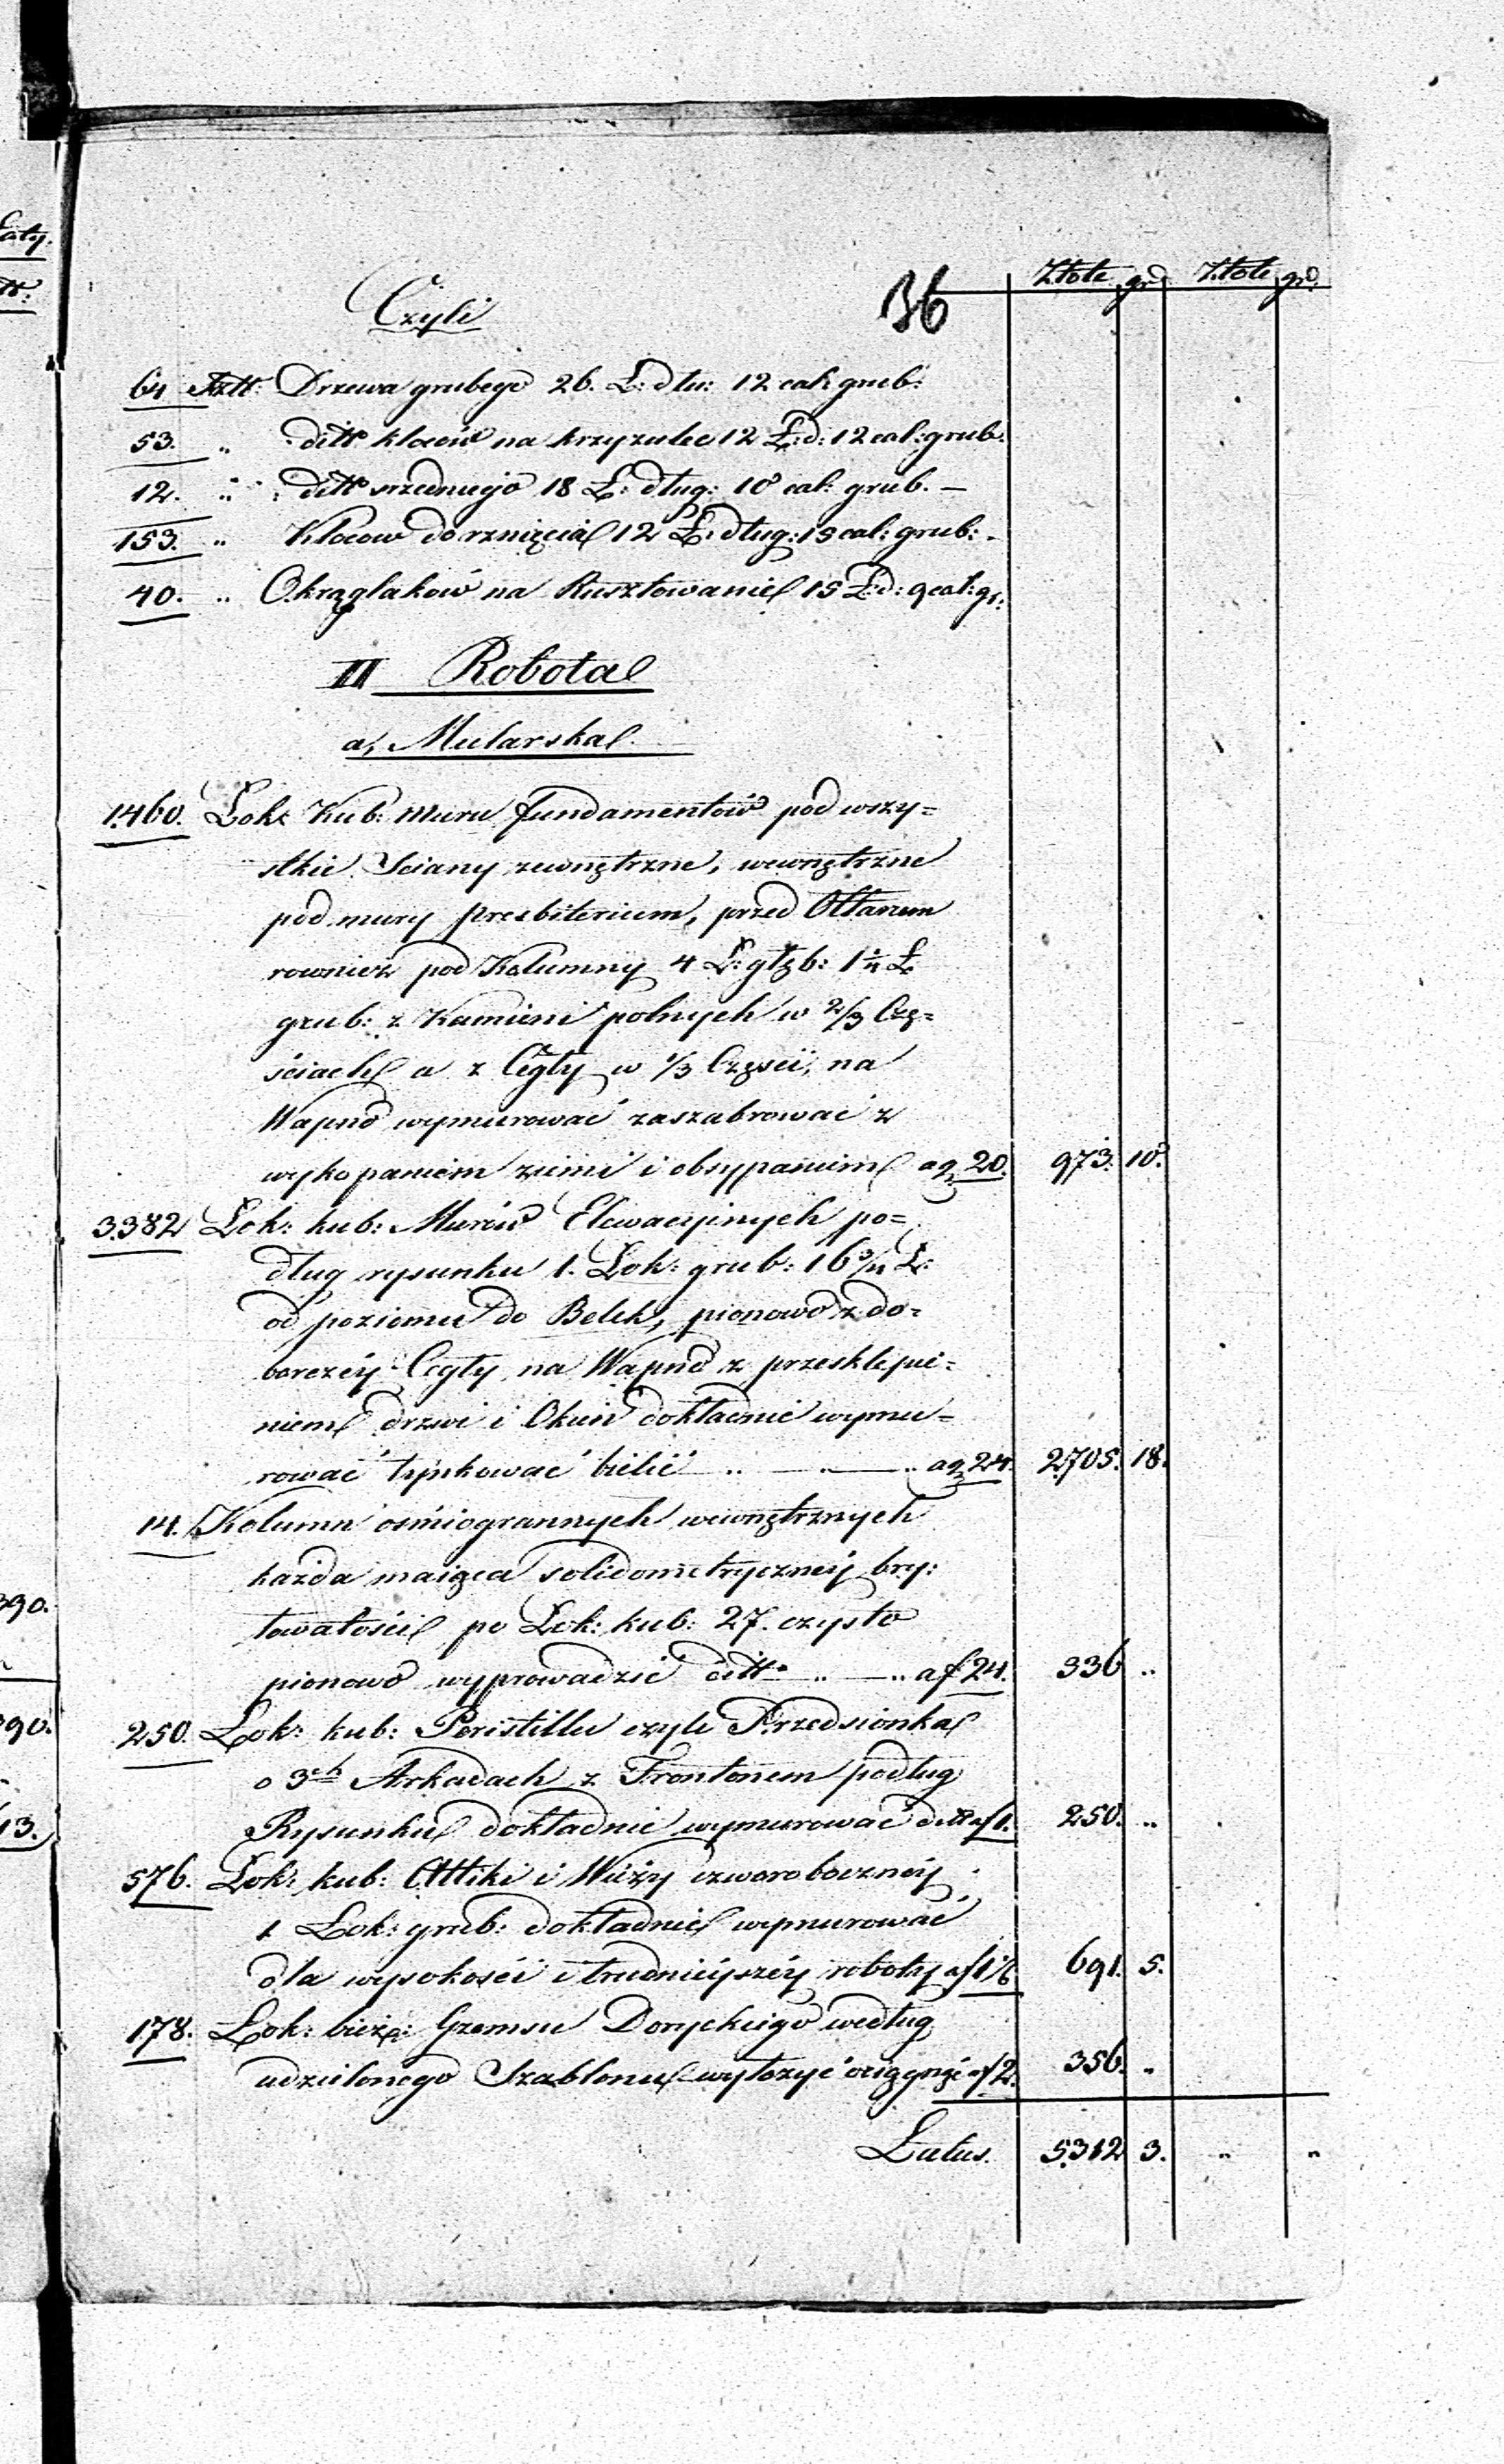 Łaty.
Złote gr. Złote gr.
36
Czyli
64 Sztt: Drzewa grubego 26. Ł: dłu: 12 cali grub:
53. „ ditto kloców na krzyzulce 12 Ł: d: 12 cal: grub:
12. „ ditto srzedniego 18 Ł: dług: 10 cal: grub. —
153. „ Klocow do rznięcia 12 Ł: dług: 15 cal: grub: -
40. „ Okrąglaków na Rusztowanie 15 Ł: d: 9 cal: gr:
III Robota
a, Mularska.
1460. Łok: Kub: muru fundamentów pod wszy=
stkie Sciany zewnętrzne, wewnętrzne
pod mury presbiterium, przed Ołtarzem
rownież pod Kolumny 4 Ł: głęb: 1 1/4 Ł
grub: z Kamieni polnych w 2/3 Czę=
ściach a z Cegły w 1/3 Części, na
Wapno wymurować zaszabrować z
wykopaniem ziemi i obsypaniem a g 20. 973. 10.
3382 Łok: kub: Murów Elewacyinych po=
dług rysunku 1. Łok: grub: 16 3/4 Ł:
od poziomu do Belek, pionowo z do=
borczey Cegły na Wapno z przesklepie=
niem drzwi i Okien dokładnie wymu=
rować tynkować bielić „ — „ — „ a g 24. 2705. 18.
14. Kolumn osmiogrannych wewnętrznych
każda maiąca solidometryczney bry:
towatości po Łok: kub: 27. czysto
pionowo wyprowadzić ditto „ — „ a f 24. 336 „
250. Łok: kub: Peristillu czyli Przedsionka
o 3ch Arkadach z Frontonem podług
Rysunku dokładnie wymurować ditto a f 1. 250. „
576. Łok: kub: Attiki i Wieży czworoboczney
1 Łok: grub: dokładnie wymurować
dla wysokości i trudnieyszey roboty a f 1 1/6 691. 5.
178. Łok: bieżą: Gzemsu Doryckiego według
udzielonego Szablonu wytożyć ociągnąć a f 2. 356. „
Latus. 5312 3. „ „
390.
390.
13.